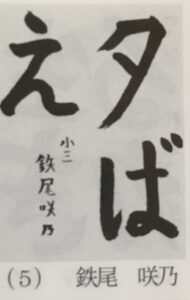 夕ば
え
小三
鉄尾咲乃
(5) 鉄尾 咲乃